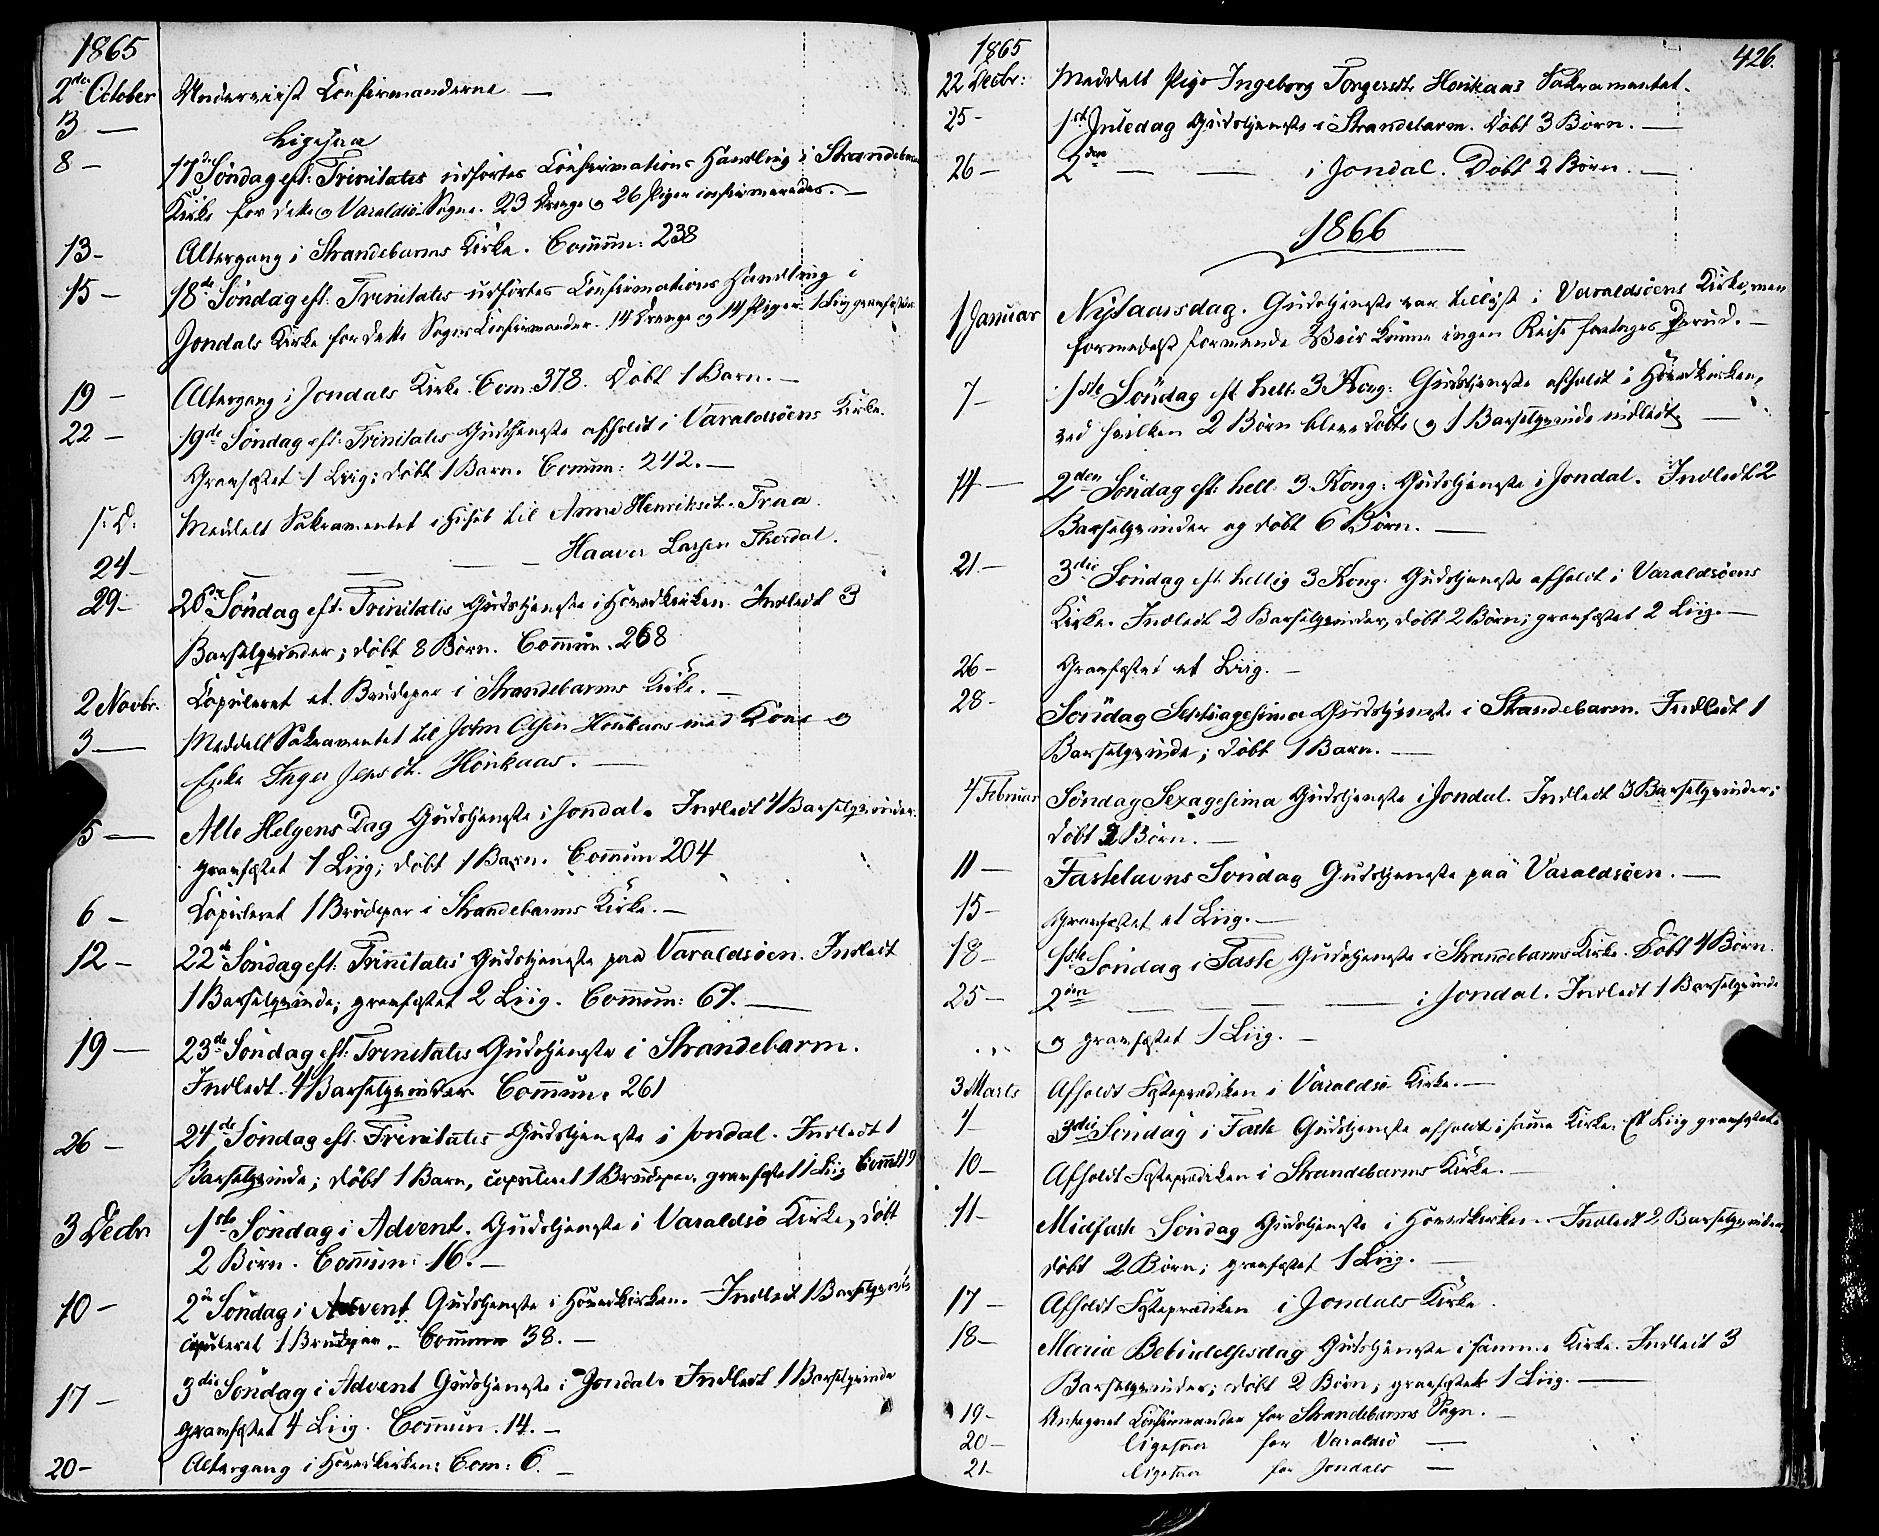 1865
2den October Underviist Confirmanderne —
3 — Ligesaa
8 — 17de Söndag eft: Trinitatis udførtes Confirmations Handling i Strandebarms
Kirke for dette og Varaldsö Sogne. 23 Drenge og 26 Piger confirmeredes. —
13 — Altergang i Strandebarms Kirke. Comūn: 238
15 — 18de Söndag eft: Trinitatis udførtes Confirmations Handling i
Jondals Kirke for dette Sogns Confirmander. 14 Drenge og 14 Piger. 1 Liig gravfæstet
19 — Altergang i Jondals Kirke. Com: 378. Døbt 1 Barn. —
22 — 19de Söndag eft: Trinitatis Gudstjeneste afholdt i Varaldsöens Kirke.
Gravfæstet 1 Liig; døbt 1 Barn. Comūn: 242. —
s. D. Meddelt Sakramentet i Huset til Anne Henriksdt. Traa
24 — — — — Haaver Larsen Thordal.
29 — 20de Söndag eft: Trinitatis Gudstjeneste i Hovedkirken. Indledt 3
Barselqvinder; døbt 8 Børn. Comūn. 268
2 Novbr. Copuleret et Brudepar i Strandebarms Kirke. —
3 — Meddelt Sakramentet til John Olsen Honkaas med Kone og
Enke Inger Jensdt. Honkaas. —
5 — Alle Helgens Dag Gudstjeneste i Jondal. Indledt 4 Barselqvinder.
gravfæstet 1 Liig; døbt 1 Barn. Comūn 204
6 — Copuleret 1 Brudepar i Strandebarms Kirke. —
12 — 22de Söndag eft: Trinitatis Gudstjeneste paa Varaldsöen. Indledt
1 Barselqvinde; gravfæstet 2 Liig. Comūn: 67. —
19 — 23de Söndag eft: Trinitatis Gudstjeneste i Strandebarm.
Indledt 4 Barselqvinder. Comūn. 261
26 — 24de Söndag eft. Trinitatis Gudstjeneste i Jondal. Indledt 1
Barselqvinde; døbt 1 Barn, copuleret 1 Brudepar, gravfæstet 1 Liig
3 Decbr 1ste Söndag i Advent. Gudstjeneste i Varaldsö Kirke, døbt
2 Børn. Comūn: 16. —
10 — 2den Söndag i Advent Gudstjeneste i Hovedkirken. Indledt 1 Barselqvinde
copuleret 1 Brudepar. Comūn 38. —
17 — 3die Söndag i Advent Gudstjeneste i Jondal. Indledt 1 Barselqvinde
gravfæstet 4 Liig. Comūn. 14. —
20 — Altergang i Hovedkirken: Com: 6. —
1865 426.
22 Decbr: Meddelt Pige Ingeborg Torgersdt. Honkaas Sakramentet.
25 — 1ste Juledag Gudstjeneste i Strandebarm. Døbt 3 Børn. —
26 — 2den — — i Jondal. Døbt 2 Børn. —
1866
1 Januar Nytaarsdag. Gudstjeneste var tillyst i Varaldsöens Kirke, men
formedelst stormende Veir kunne ingen Reise foretages derud. —
7 — 1ste Söndag eft hell. 3 Kong: Gudstjeneste afholdt i Hovedkirken,
ved hvilken 2 Børn bleve døbte og 1 Barselqvinde indledt —
14 — 2den Söndag eft: hell: 3 Kong: Gudstjeneste i Jondal. Indledt 2
Barselqvinder og døbt 6 Børn. —
21 — 3die Söndag eft hellig 3 Kong: Gudstjeneste afholdt i Varaldsöens
Kirke. Indledt 2 Barselqvinder, døbt 2 Børn; gravfæstet 2 Liig. —
26 — Gravfæstet et Liig. —
28 — Söndag Septuagesima Gudstjeneste i Strandebarm. Indledt 1
Barselqvinde; døbt 1 Barn. —
4 Februar Söndag Sexagesima Gudstjeneste i Jondal. Indledt 3 Barselqvinder;
døbt 2 Børn. —
11 — Fastelavns Söndag Gudstjeneste paa Varaldsöen. —
15 — Gravfæstet et Liig. —
18 — 1ste Söndag i Faste Gudstjeneste i Strandebarms Kirke. Døbt 4 Børn.
25 — 2den — — — i Jondal. Indledt 1 Barselqvinde
og gravfæstet 1 Liig. —
3 Marts Afholdt Fasteprædiken i Varaldsö Kirke. —
4 — 3die Söndag i Faste Gudstjeneste afholdt i samme Kirke. Et Liig gravfæstet
10 — Afholdt Fasteprædiken i Strandebarms Kirke. —
11 — Midfaste Söndag Gudstjeneste i Hovedkirken. Indledt 2 Barselqvinder,
døbt 2 Børn; gravfæstet 1 Liig. —
17 — Afholdt Fasteprædiken i Jondals Kirke.
18 — Mariæ Bebudelsesdag Gudstjeneste i samme Kirke. Indledt 3
Barselqvinder; døbt 2 Børn; gravfæstet 1 Liig. —
19 — Antegnet Confirmander for Strandebarms Sogn. —
20 — ligesaa for Varaldsö —
21 — ligesaa for Jondals —